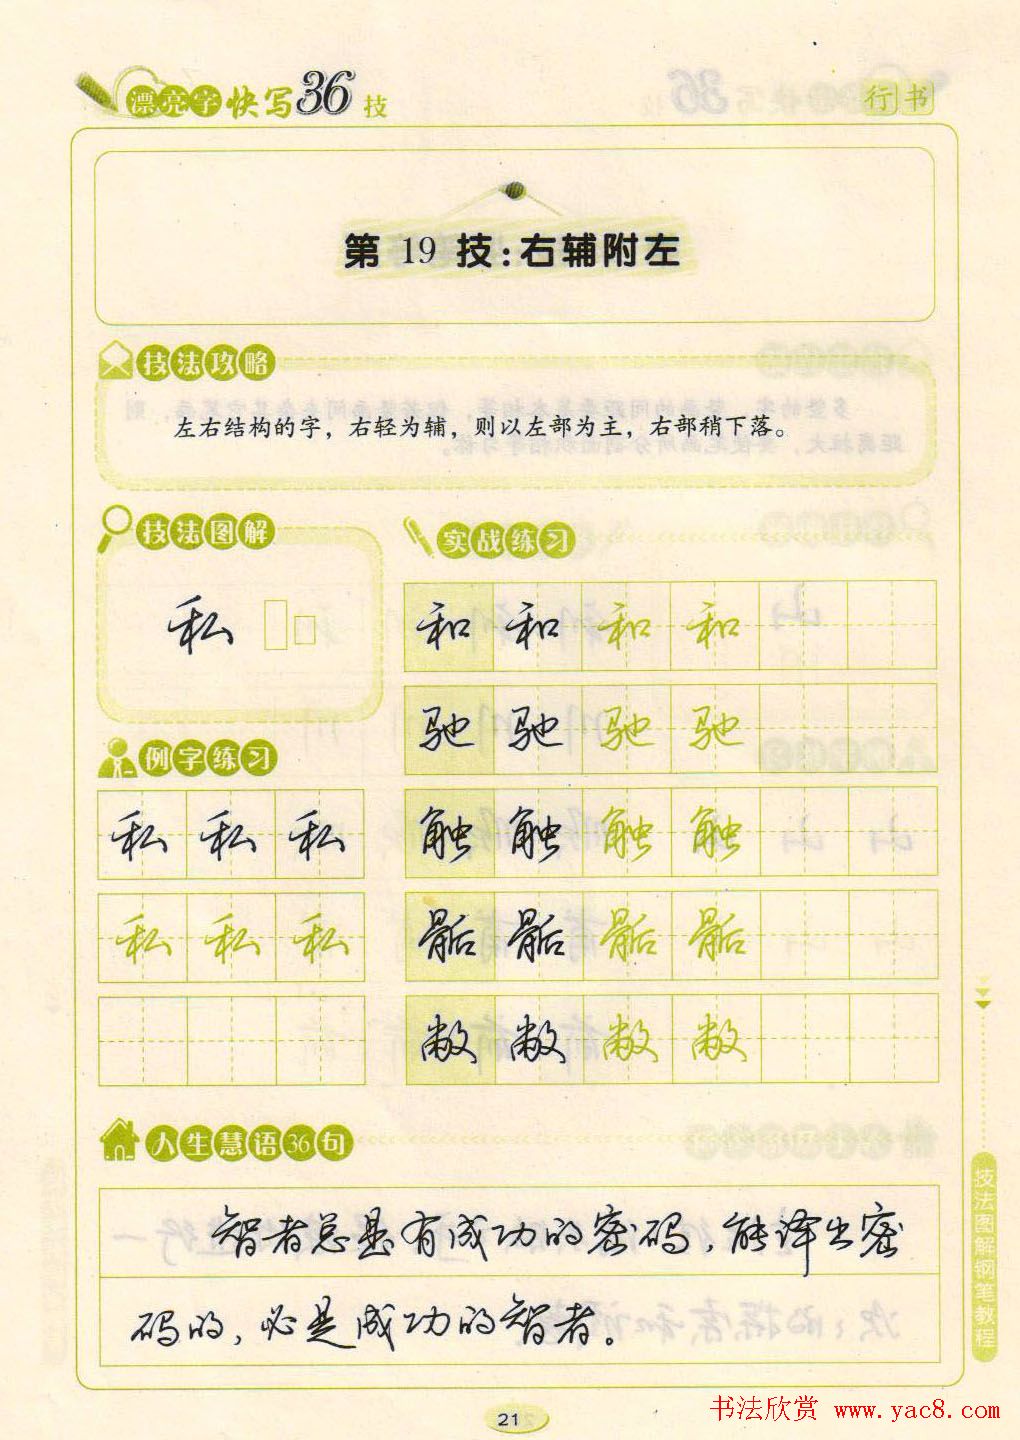 漂亮字快写36技
行书
第19技：右辅附左
技法攻略
左右结构的字，右轻为辅，则以左部为主，右部稍下落。
技法图解
私
实战练习
和 和 和 和
驰 驰 驰 驰
触 触 触 触
骺 骺 骺 骺
敝 敝 敝 敝
例字练习
私 私 私
私 私 私
人生慧语36句
智者总是有成功的密码，能译出密
码的，必是成功的智者。
技法图解钢笔教程
21
书法欣赏 www.yac8.com